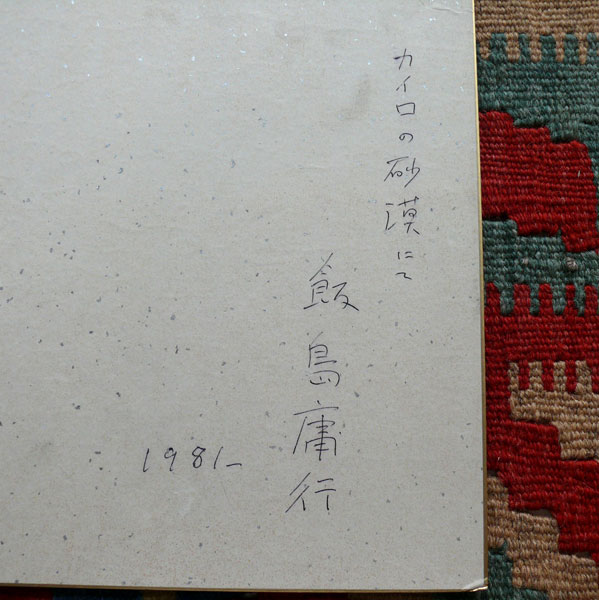 カイロの砂漠にて
飯島庸行
1981